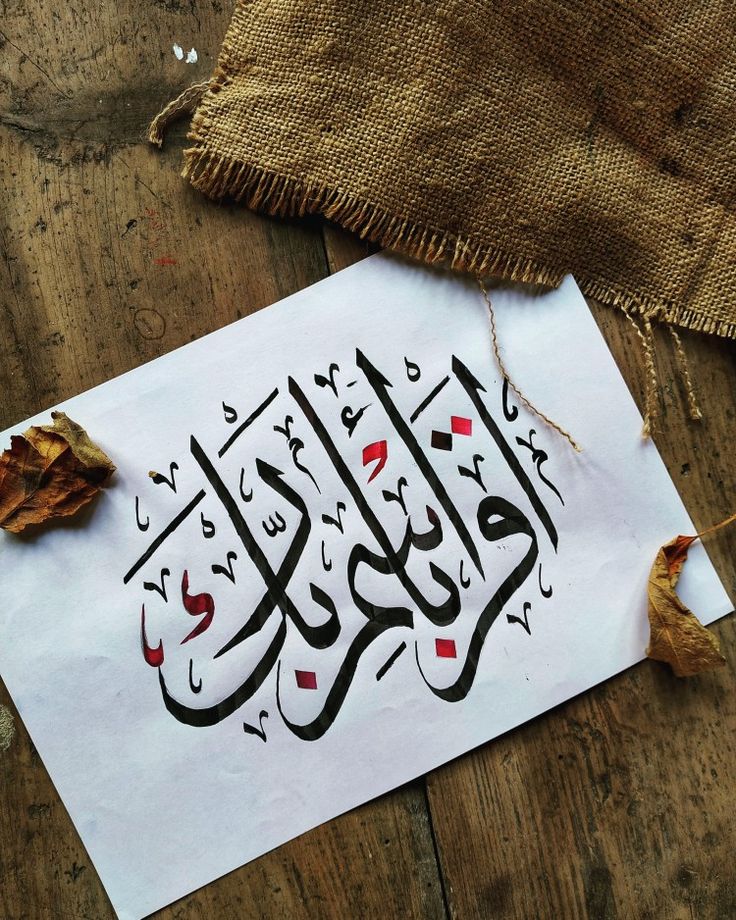 اقرأ باسم ربّك